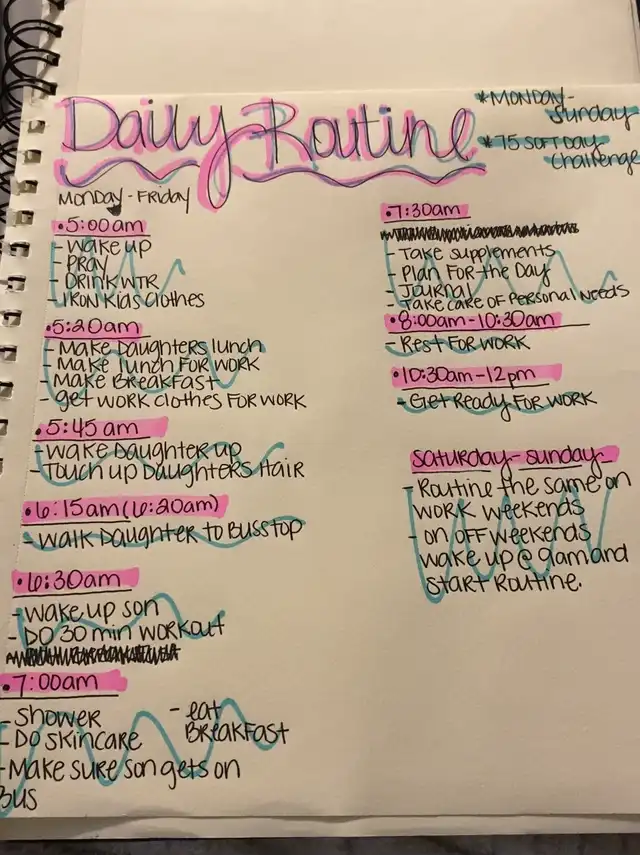 Daily Routine
*MONDAY-
Sunday
*75 SOFT DAY
challenge
MONDAY - FRIDAY
•5:00am
- Wake up
- PRAY
- DRINK WTR
- IRON KIDS clothes
•5:20am
- Make Daughters lunch
- Make lunch FOR WORK
- Make BreakFast
- get WORK clothes FOR WORK
•5:45am
- Wake Daughter up
- Touch up Daughters Hair
•6:15am (6:20am)
- Walk Daughter to Busstop
•6:30am
- Wake up son
- DO 30 min workout
•7:00am
- Shower
- Do skincare
- Make sure son gets on
Bus
- eat
BreakFast
•7:30am
- Take supplements
- Plan For the Day
- Journal
- Take care of Personal Needs
•8:00am-10:30am
- Rest FOR WORK
•10:30am-12pm
- Get Ready For work
Saturday-Sunday
- Routine the same on
work weekends
- on OFF weekends
wake up @ 9am and
start Routine.